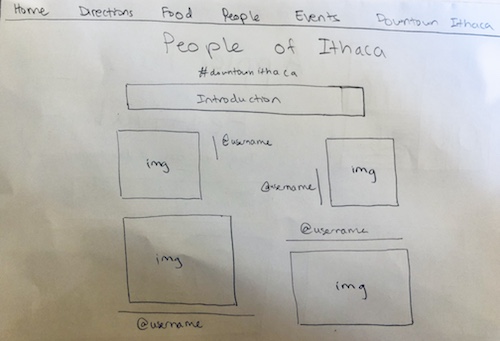 Home Directions Food People Events Downtown Ithaca
People of Ithaca
#downtownithaca
Introduction
img
@username
@username
img
img
@username
@username
img